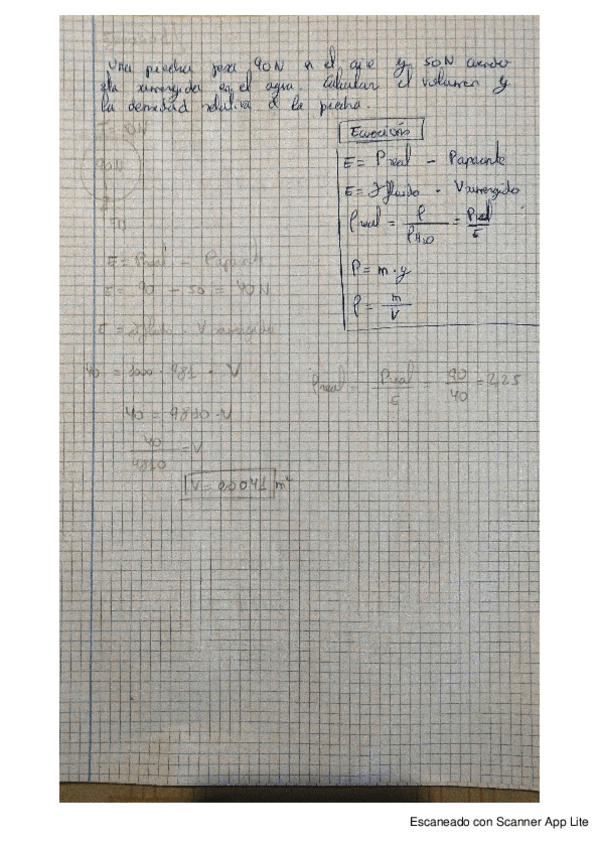 Una piedra pesa 90N en el aire y 50N cuando
esta sumergida en el agua. Calcular el volumen y
la densidad relativa de la piedra.
90N
Ecuación
E = Preal - Paparente
E = γfluido · Vsumergido
ρreal = ρ/ρH2O = Preal/E
P = m · g
ρ = m/V
E = Preal - Paparente
E = 90 - 50 = 40N
E = γfluido · Vsumergido
40 = 1000 · 9,81 · V
40 = 9810 · V
40/9810 = V
V = 0,0041 m²
ρreal = Preal/E = 90/40 = 2,25
Escaneado con Scanner App Lite